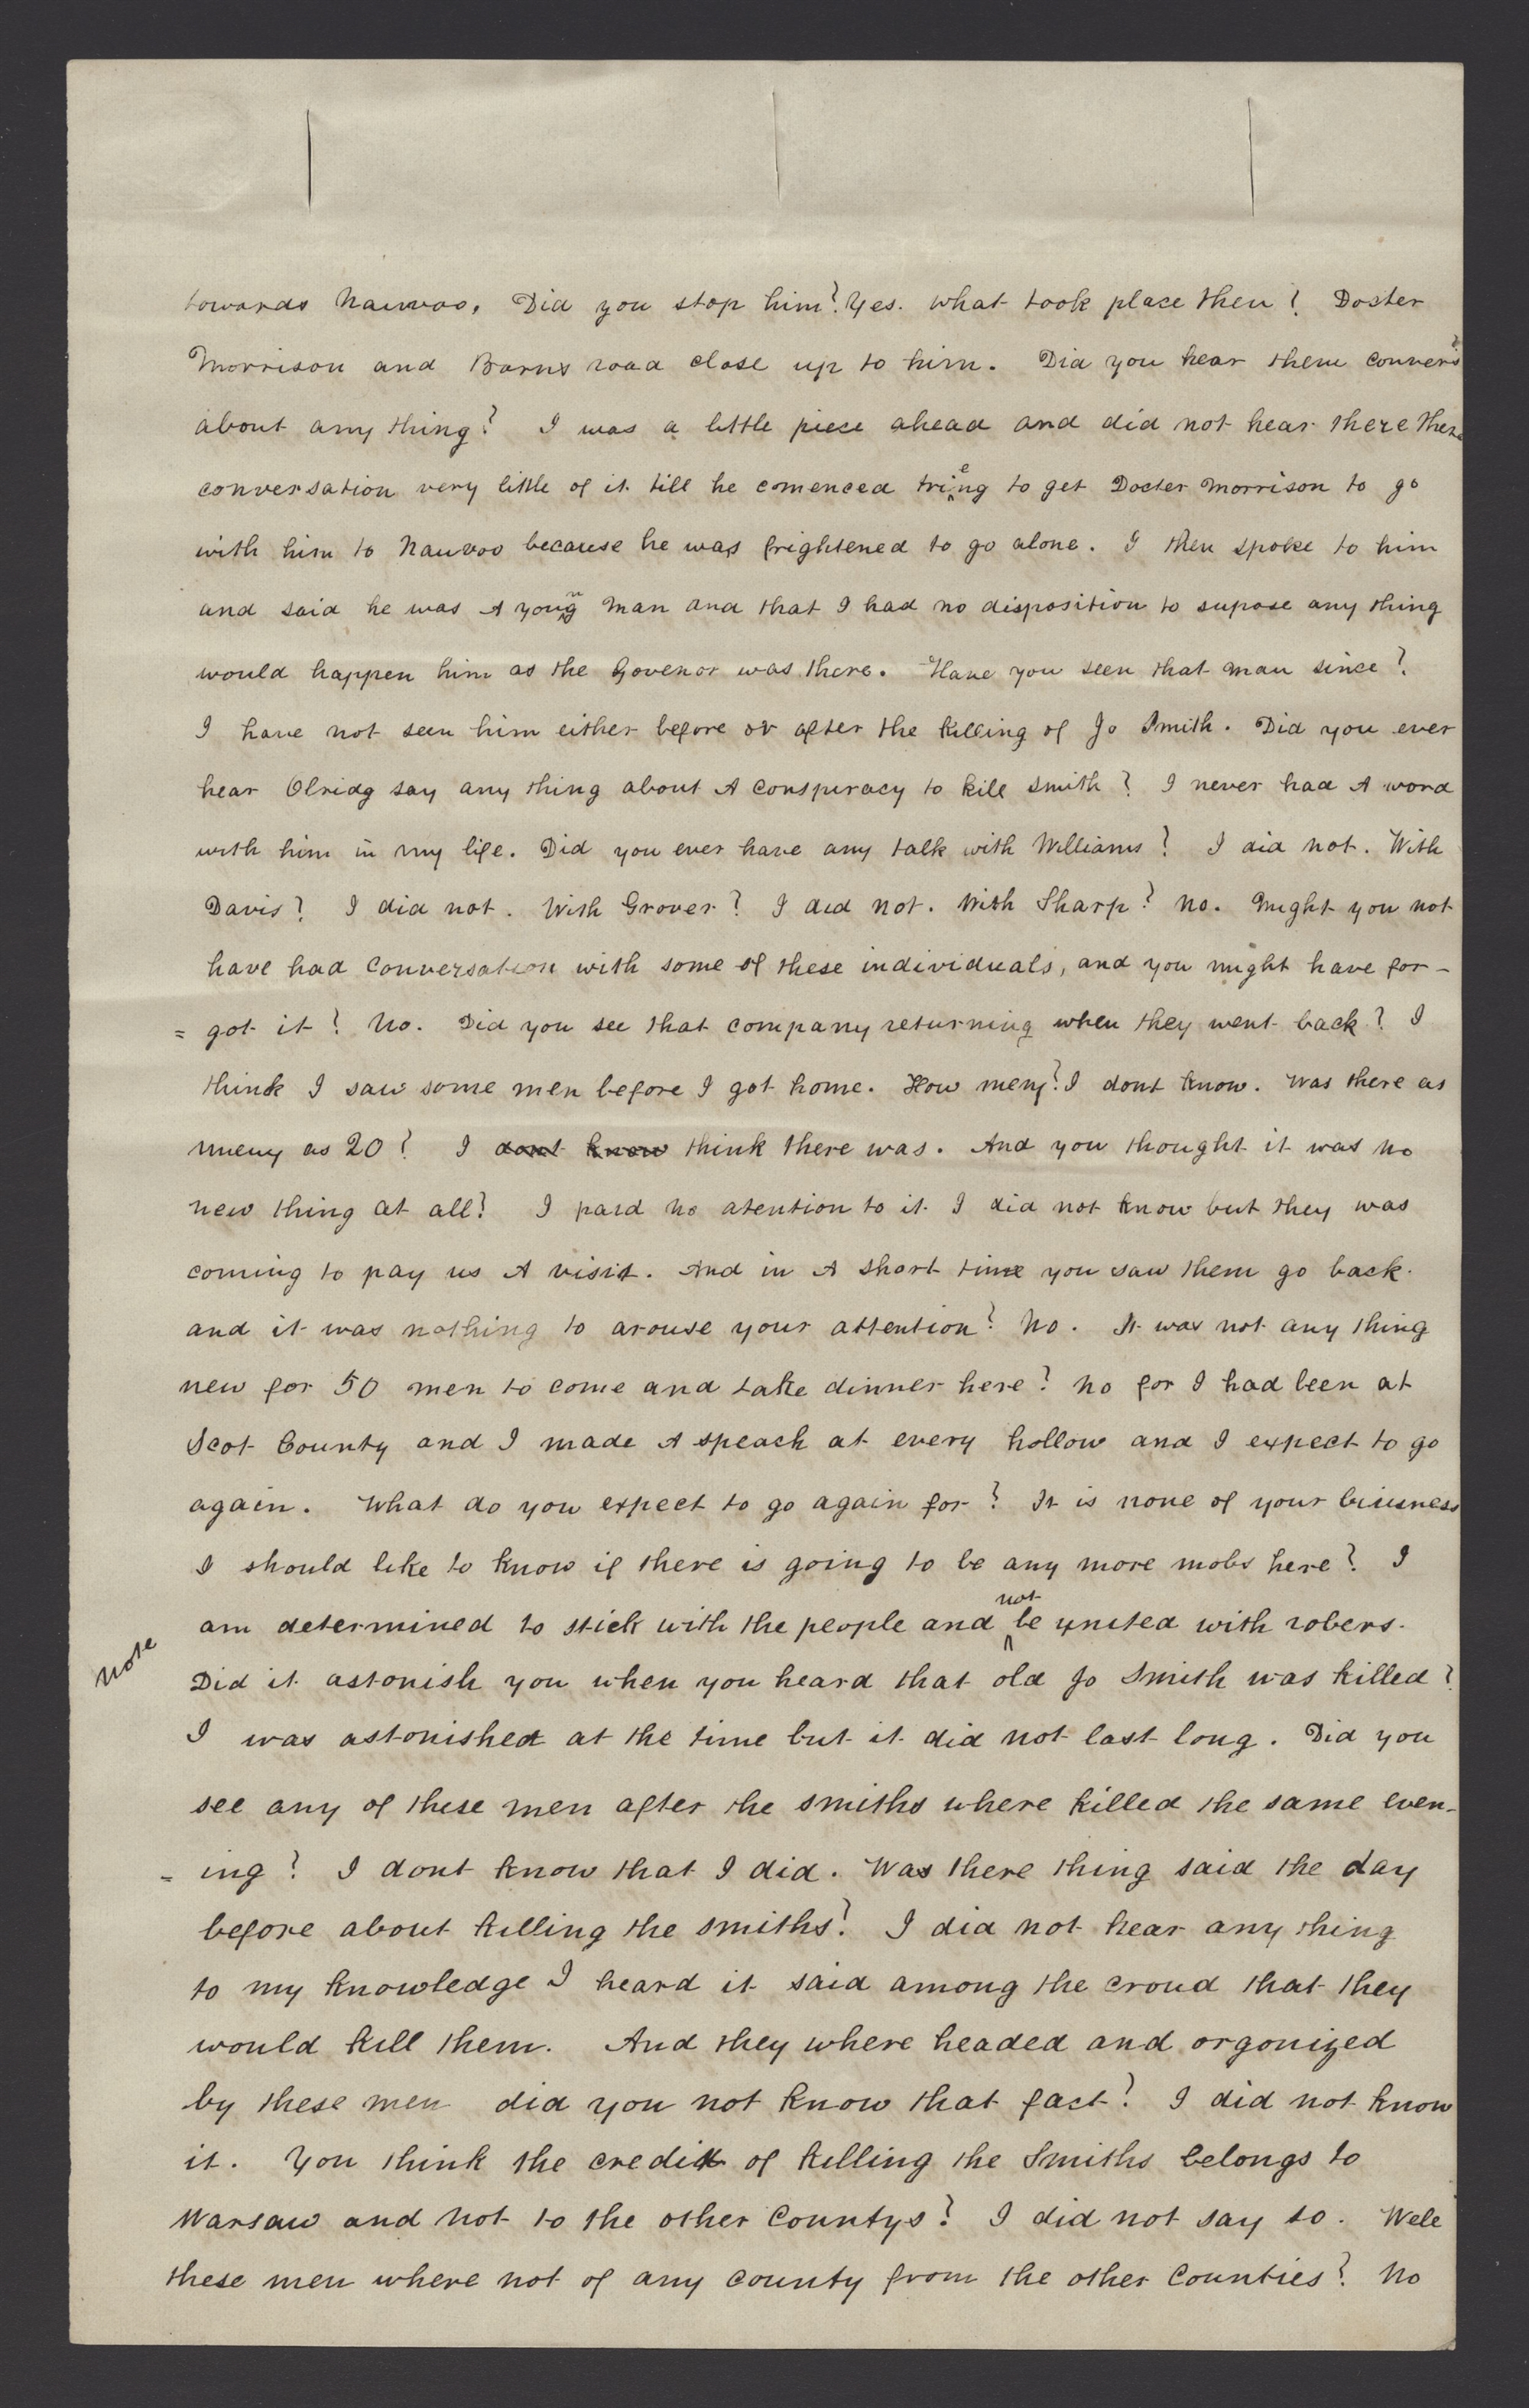 towards Nauvoo, Did you stop him? Yes. What took place then? Docter
Morrison and Barns road close up to him. Did you hear them convers
about any thing? I was a little piece ahead and did not hear there
conversation very little of it till he comenced trieng to get Docter Morrison to go
with him to Nauvoo because he was frightened to go alone. I then spoke to him
and said he was A young man and that I had no disposition to supose any thing
would happen him as the Govenor was there. Have you seen that man since?
I have not seen him either before or after the killing of Jo Smith. Did you ever
hear Olridg say any thing about A conspiracy to kill Smith? I never had A word
with him in my life. Did you ever have any talk with Williams? I did not. With
Davis? I did not. With Grover? I did not. With Sharp? No. Might you not
have had conversation with some of these individuals, and you might have for-
= got it? No. Did you see that company returning when they went back? I
think I saw some men before I got home. How meny? I dont know. Was there as
meny as 20? I dont know think there was. And you thought it was no
new thing at all? I paid no atention to it I did not know but they was
coming to pay us A visit. And in A short time you saw them go back.
and it was nothing to arouse your attention? No. It was not any thing
new for 50 men to come and take dinner here? No for I had been at
Scot County and I made A speach at every hollow and I expect to go
again. What do you expect to go again for? It is none of your biusness
I should like to know if there is going to be any more mobs here? I
am determined to stick with the people and not be united with robers.
note
Did it astonish you when you heard that old Jo Smith was killed?
I was astonished at the time but it did not last long. Did you
see any of these men after the smiths where killed the same even-
= ing? I dont know that I did. Was there thing said the day
before about killing the smiths? I did not hear any thing
to my knowledge I heard it said among the croud that they
would kill them. And they where headed and orgonized
by these men did you not know that fact? I did not know
it. You think the credit of killing the Smiths belongs to
Warsaw and not to the other Countys? I did not say so. Well
these men where not of any county from the other Counties? No